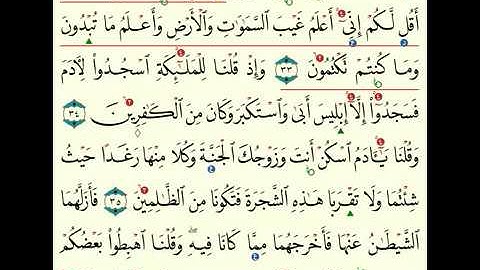 أَقُل لَّكُمْ إِنِّىٓ أَعْلَمُ غَيْبَ ٱلسَّمَٰوَٰتِ وَٱلْأَرْضِ وَأَعْلَمُ مَا تُبْدُونَ
وَمَا كُنتُمْ تَكْتُمُونَ ٣٣ وَإِذْ قُلْنَا لِلْمَلَٰٓئِكَةِ ٱسْجُدُوا۟ لِءَادَمَ
فَسَجَدُوٓا۟ إِلَّآ إِبْلِيسَ أَبَىٰ وَٱسْتَكْبَرَ وَكَانَ مِنَ ٱلْكَٰفِرِينَ ٣٤
وَقُلْنَا يَٰٓـَٔادَمُ ٱسْكُنْ أَنتَ وَزَوْجُكَ ٱلْجَنَّةَ وَكُلَا مِنْهَا رَغَدًا حَيْثُ
شِئْتُمَا وَلَا تَقْرَبَا هَٰذِهِ ٱلشَّجَرَةَ فَتَكُونَا مِنَ ٱلظَّٰلِمِينَ ٣٥ فَأَزَلَّهُمَا
ٱلشَّيْطَٰنُ عَنْهَا فَأَخْرَجَهُمَا مِمَّا كَانَا فِيهِ ۖ وَقُلْنَا ٱهْبِطُوا۟ بَعْضُكُمْ